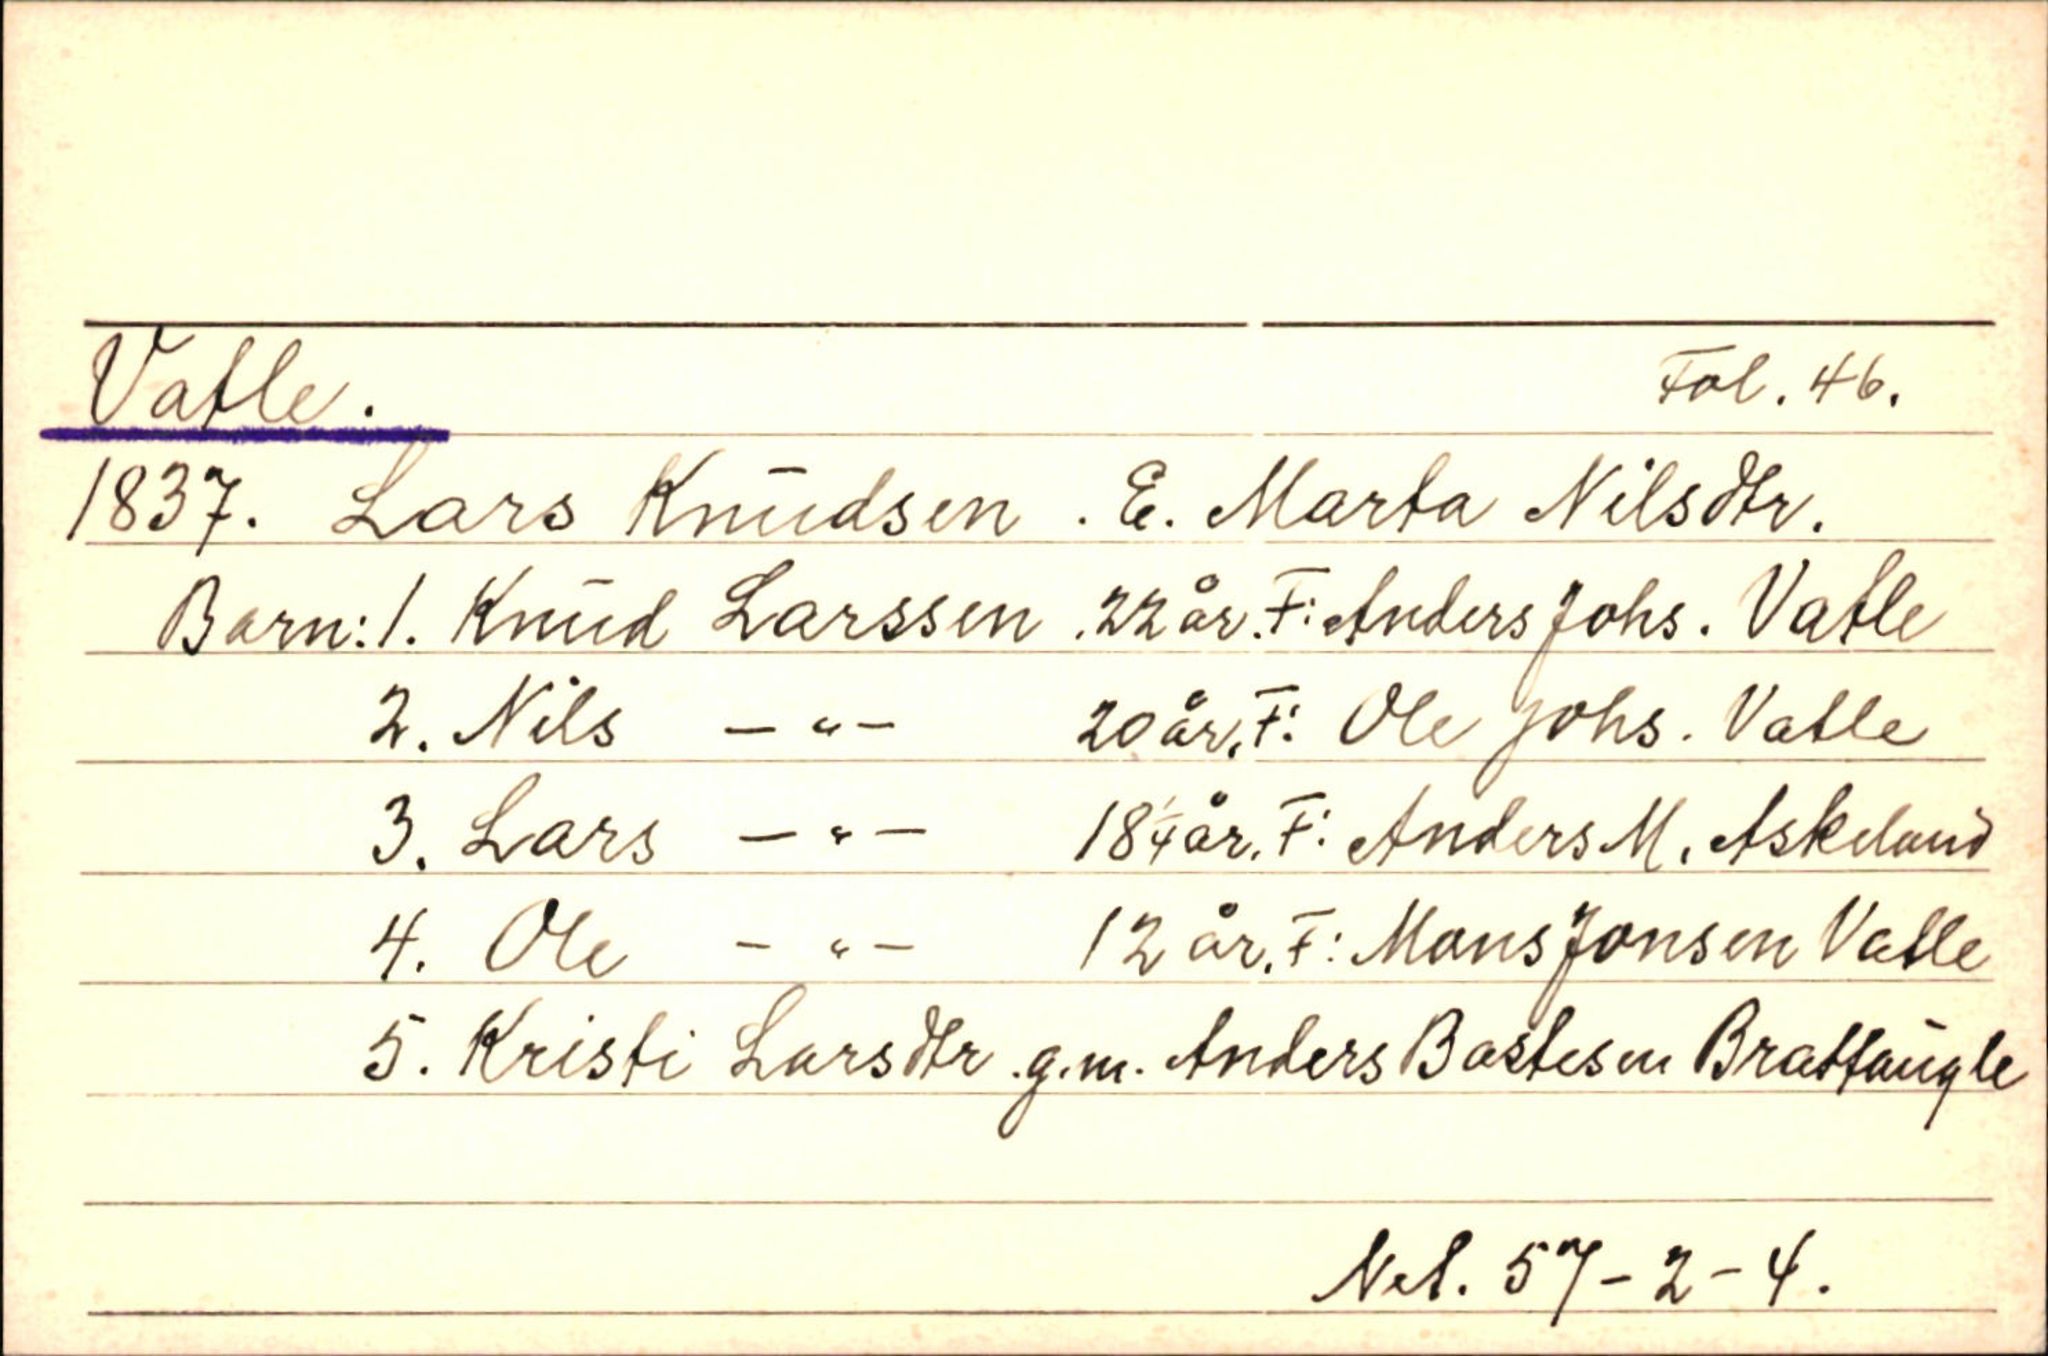 Vatle. Fol. 46.
1837. Lars Knudsen. E. Marta Nilsdtr.
Barn: 1. Knud Larssen. 22 år. F: Anders Johs. Vatle
2. Nils — " — 20 år. F: Ole Johs. Vatle
3. Lars — " — 18 1/4 år. F: Anders M. Askeland
4. Ole — " — 12 år. F: Mons Jonsen Vatle
5. Kristi Larsdtr. g.m. Anders Bastesen Brattaugle
Net. 57-2-4.